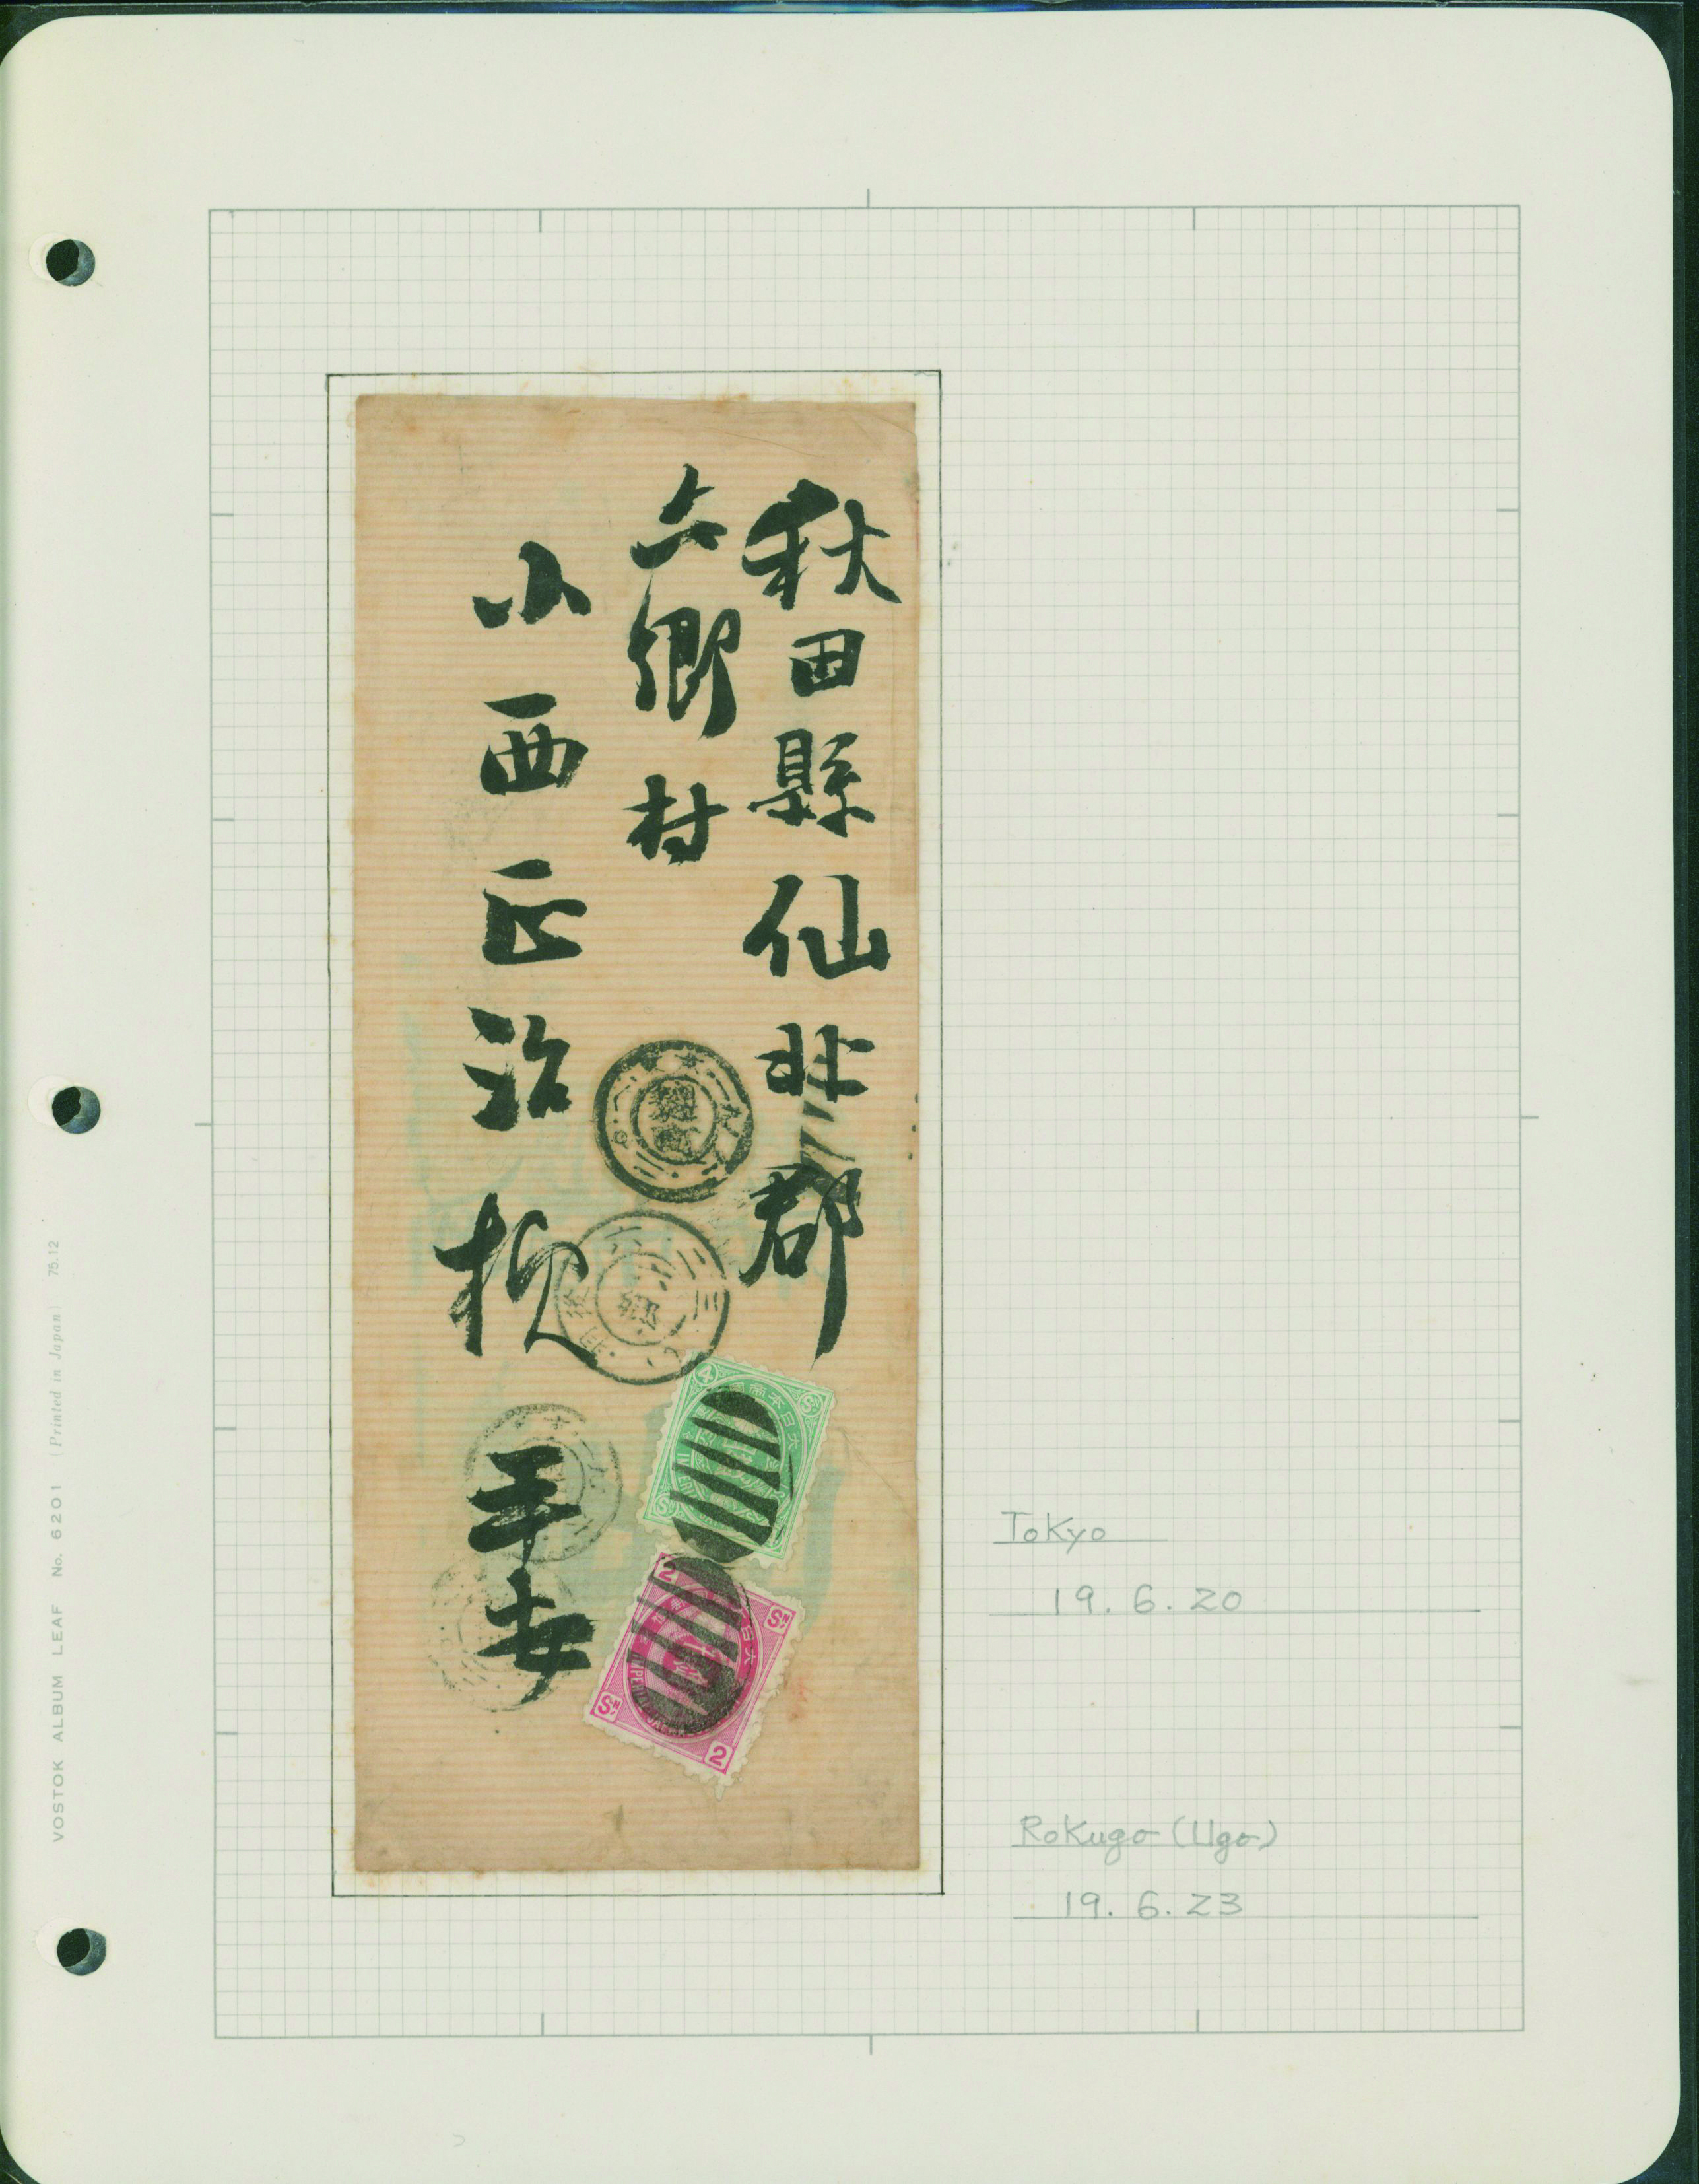 秋田縣仙北郡
六郷村
小西正治様
平安
4
2
SN
SN
2
Tokyo
19.6.20
Rokugo (Ugo)
19.6.23
VOSTOK ALBUM LEAF No. 6201 (Printed in Japan) 75.12